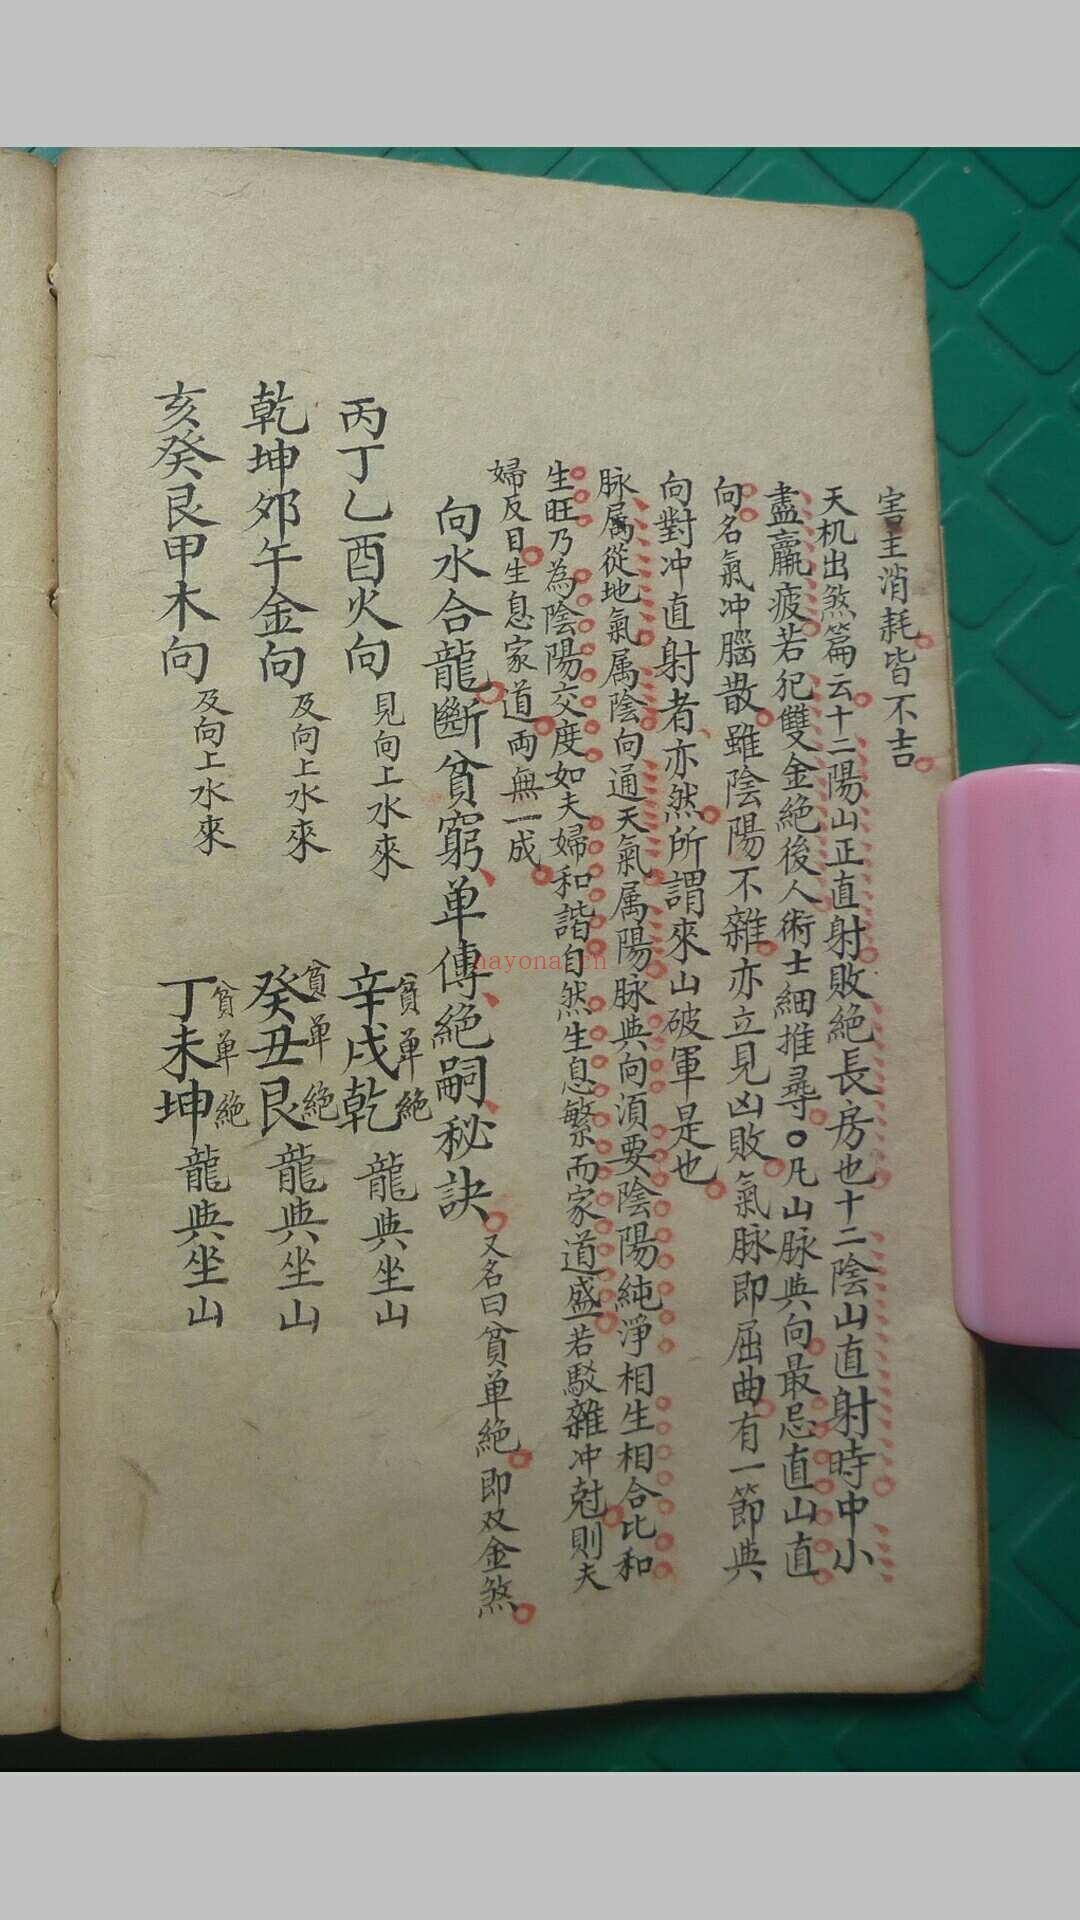 害主消耗皆不吉
天机出煞篇云十二陽山正直射敗絕長房也十二陰山直射時中小
盡羸疲若犯雙金絕後人術士細推尋○凡山脉與向最忌直山直
向名氣冲腦散雖陰陽不雜亦立見凶敗氣脉即屈曲有一節與
向對冲直射者亦然所謂來山破軍是也
脉屬從地氣属陰向通天氣属陽脉與向須要陰陽純淨相生相合比和
生旺乃為陰陽交度如夫婦和諧自然生息繁而家道盛若駁雜冲尅則夫
婦反目生息家道両無一成
向水合龍斷貧窮单傳絕嗣秘訣 又名曰貧单絕即双金煞
丙丁乙酉火向 見向上水來 辛戌乾 貧单絕 龍與坐山
乾坤夘午金向 及向上水來 癸丑艮 貧单絕 龍與坐山
亥癸艮甲木向 及向上水來 丁未坤 貧单絕 龍與坐山
nayona.cn